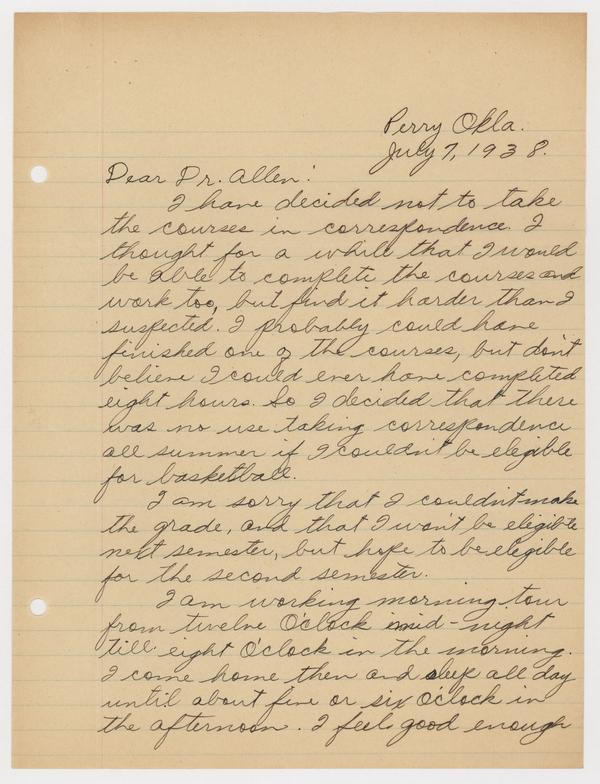 Perry Okla.
July 7, 1938.
Dear Dr. Allen:
I have decided not to take
the courses in correspondence. I
thought for a while that I would
be able to complete the courses and
work too, but find it harder than I
suspected. I probably could have
finished one of the courses, but don't
believe I could ever have completed
eight hours. So I decided that there
was no use taking correspondence
all summer if I couldn't be elegible
for basketball.
I am sorry that I couldn't make
the grade, and that I won't be eligible
next semester, but hope to be elegible
for the second semester.
I am working morning tour
from twelve O'clock mid-night
till eight O'clock in the morning.
I come home then and sleep all day
until about five or six O'clock in
the afternoon. I feel good enough